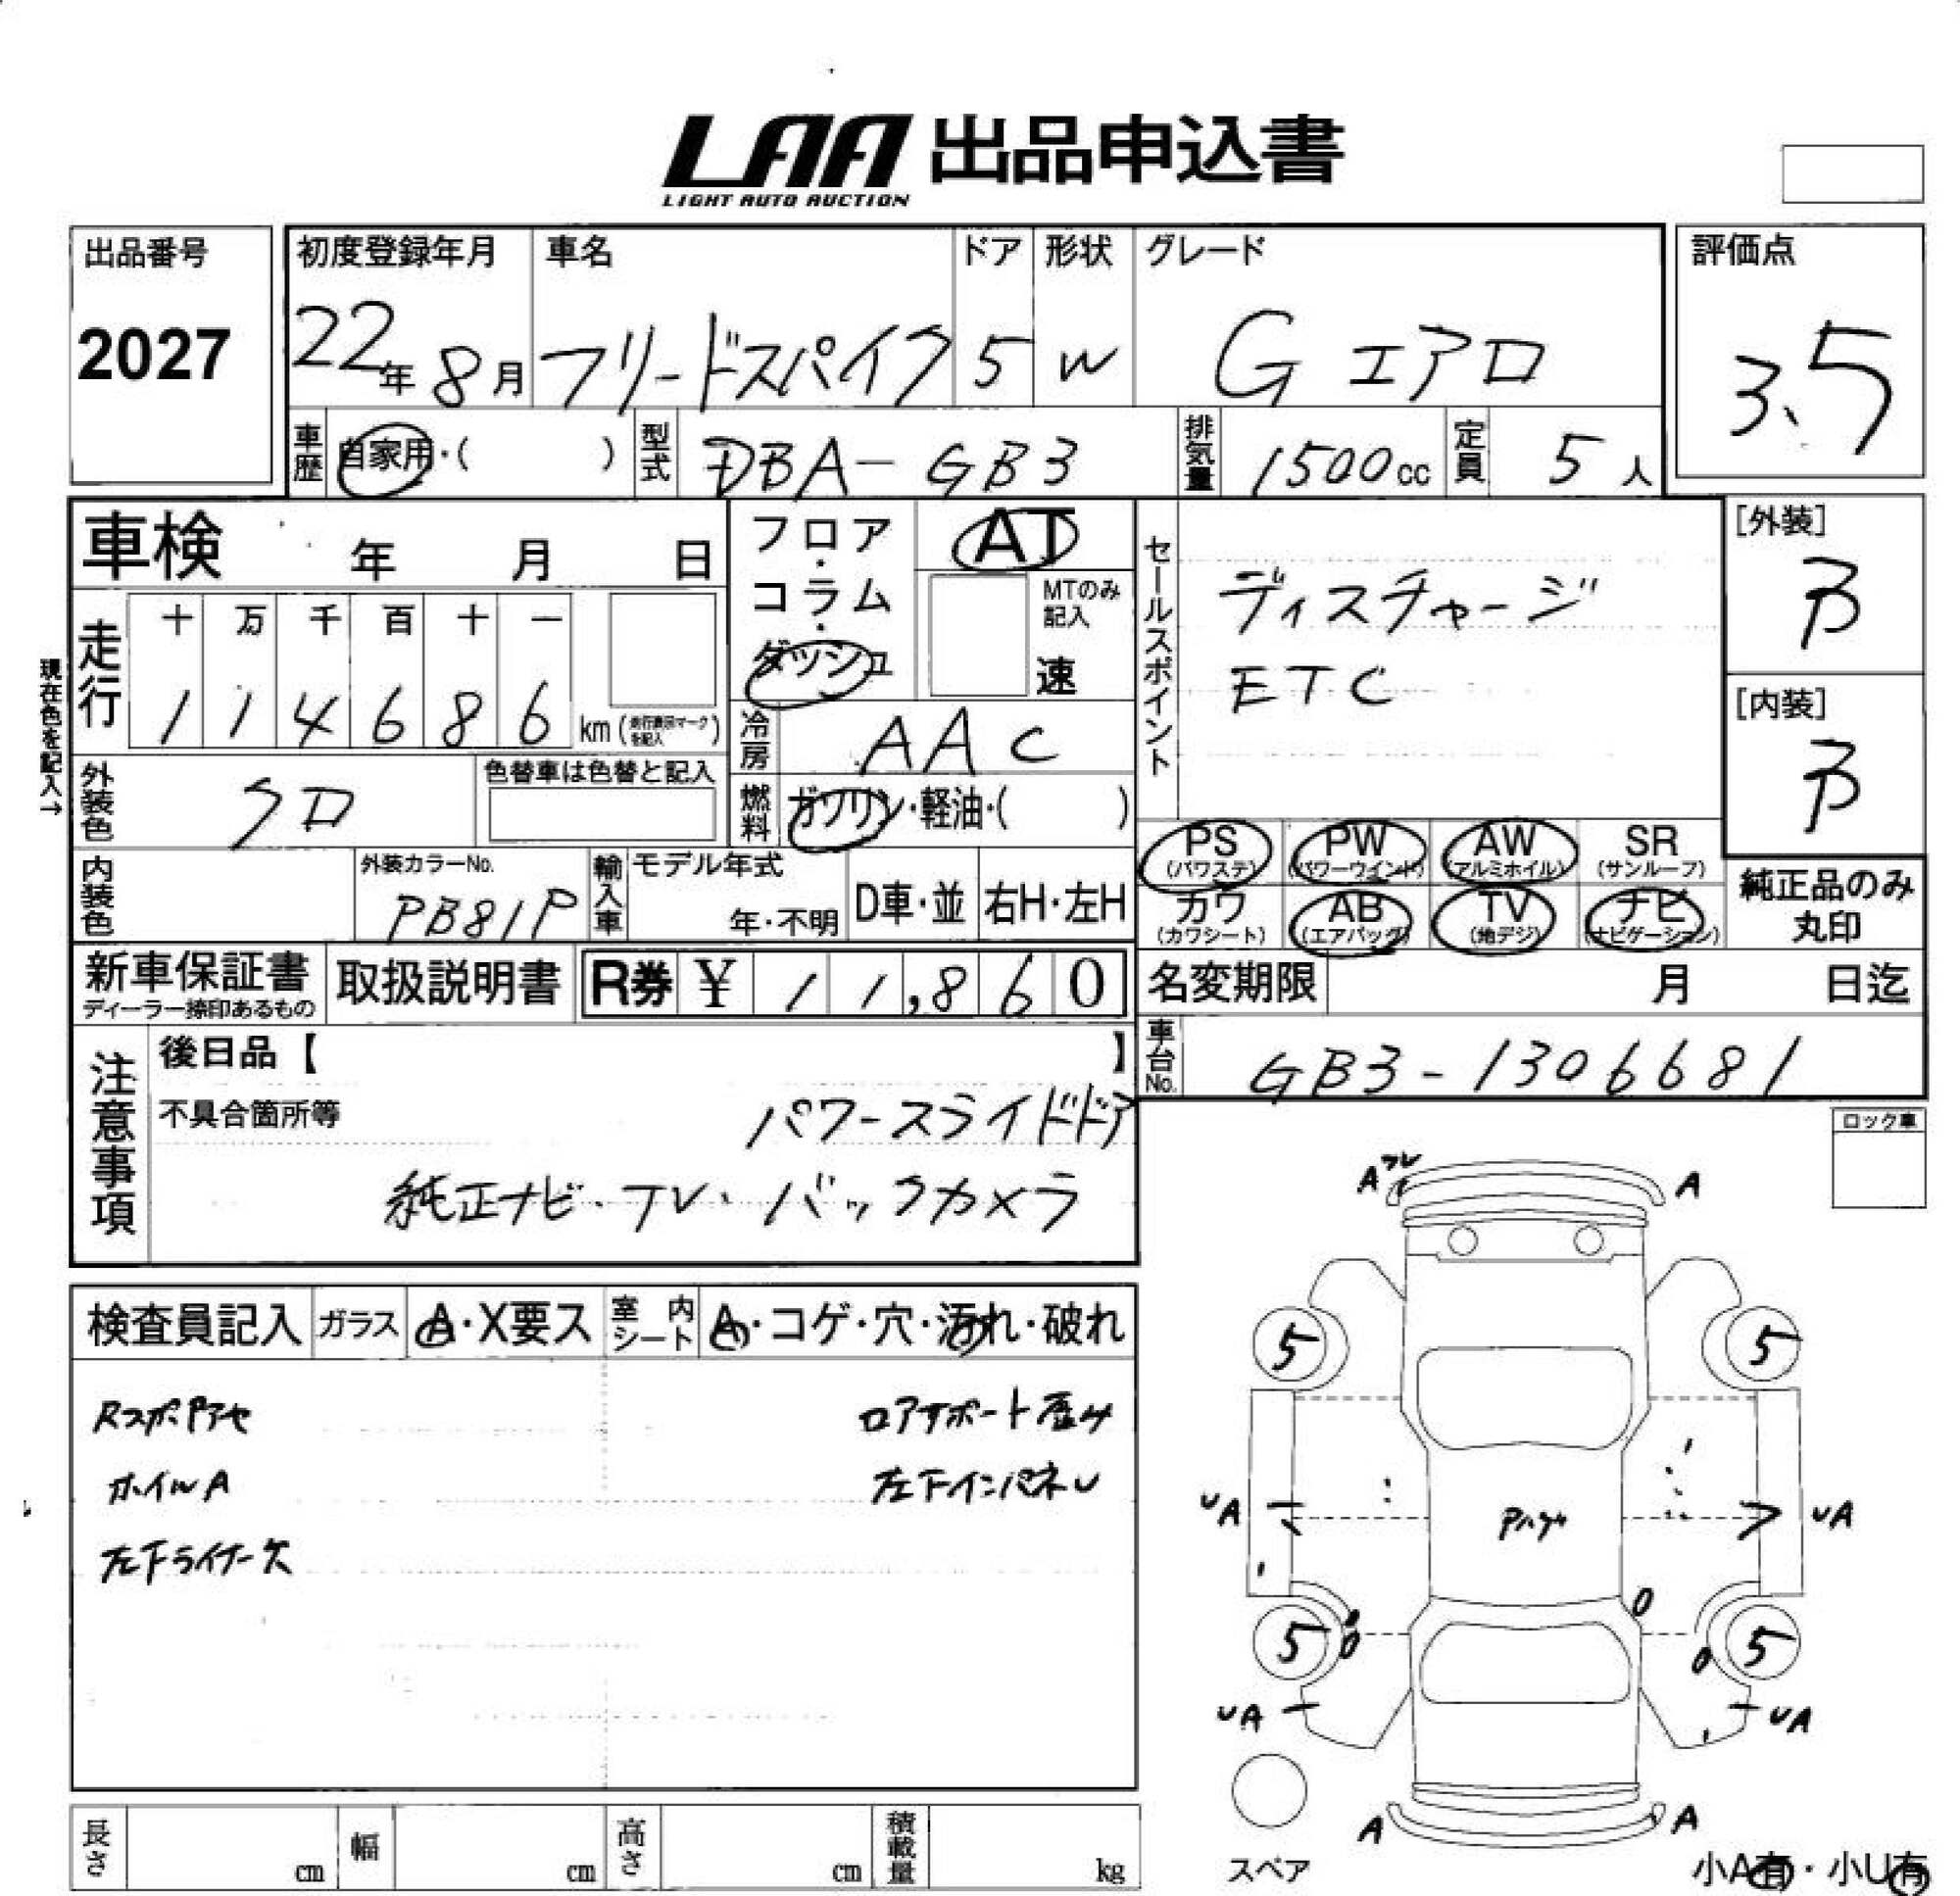 LAA 出品申込書
LIGHT AUTO AUCTION
出品番号 初度登録年月 車名 ドア 形状 グレード 評価点
2027 22年 8月 フリードスパイク 5 W Gエアロ 3.5
車歴 自家用・( ) 型式 DBA-GB3 排気量 1500cc 定員 5人
車検 年 月 日
フロア・コラム・ダッシュ
AT
MTのみ記入
速
セールスポイント
ディスチャージ
ETC
[外装]
B
[内装]
B
現在色を記入→
走行 十 万 千 百 十 一
1 1 4 6 8 6 km
冷房 AAC
外装色 クロ 色替車は色替と記入
燃料 ガソリン・軽油・( )
PS (パワステ) PW (パワーウインド) AW (アルミホイル) SR (サンルーフ)
カワ (カワシート) AB (エアバッグ) TV (地デジ) ナビ (ナビゲーション)
純正品のみ丸印
内装色 外装カラーNo. PB81P 輸入車 モデル年式 年・不明 D車・並 右H・左H
新車保証書 ディーラー捺印あるもの 取扱説明書 R券 ¥ 11,860
名変期限 月 日迄
車台No. GB3-1306681
注意事項
後日品【 】
不具合箇所等 パワースライドドア
純正ナビ・TV・バックカメラ
ロック車
検査員記入 ガラス A・X要ス 室内シート A・コゲ・穴・汚れ・破れ
ロアサポート歪み
ホイルA 左下インパネU
左下ライナー欠
A A
5 5
UA UA
5 5
UA UA
A A
スペア
小A有・小U有
長さ cm 幅 cm 高さ cm 積載量 kg